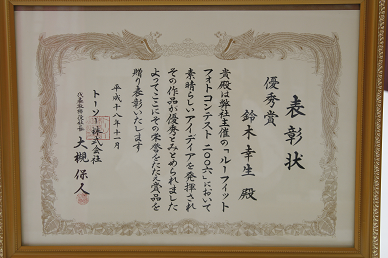 表彰状
優秀賞
鈴木幸生 殿
貴殿は弊社主催の「ルーフィット
フォトコンテスト二〇〇六」において
素晴らしいアイディアを発揮され
その作品が優秀とみとめられました
よってここにその栄誉をたたえ賞品を
贈り表彰いたします
平成十八年十一月
トーソー株式会社
代表取締役社長 大槻保人